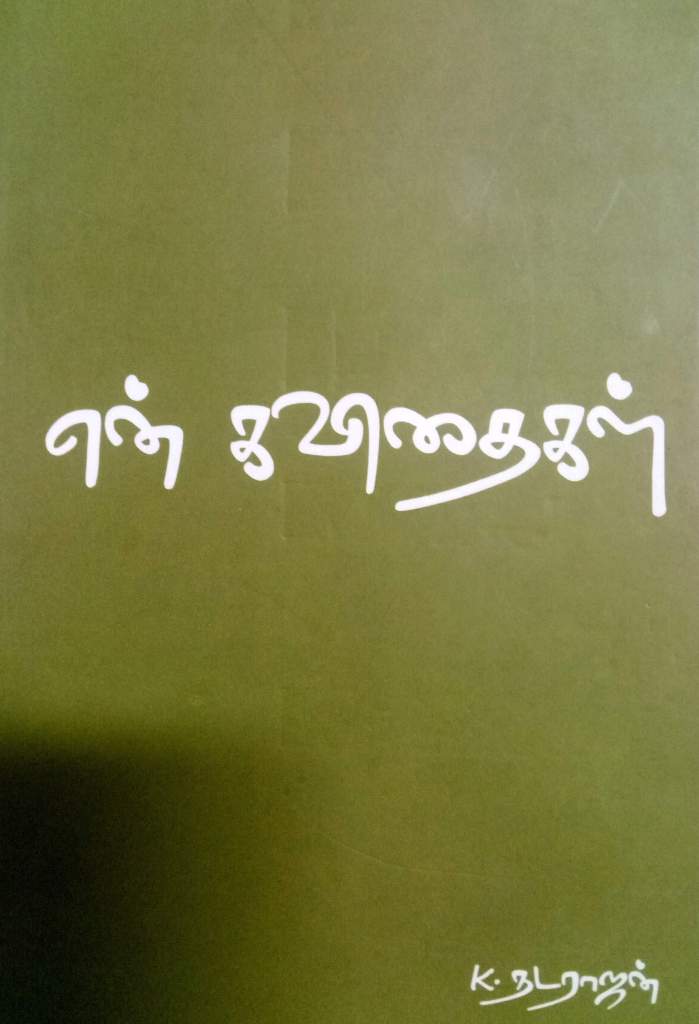 என் கவிதைகள்
K. நடராஜன்